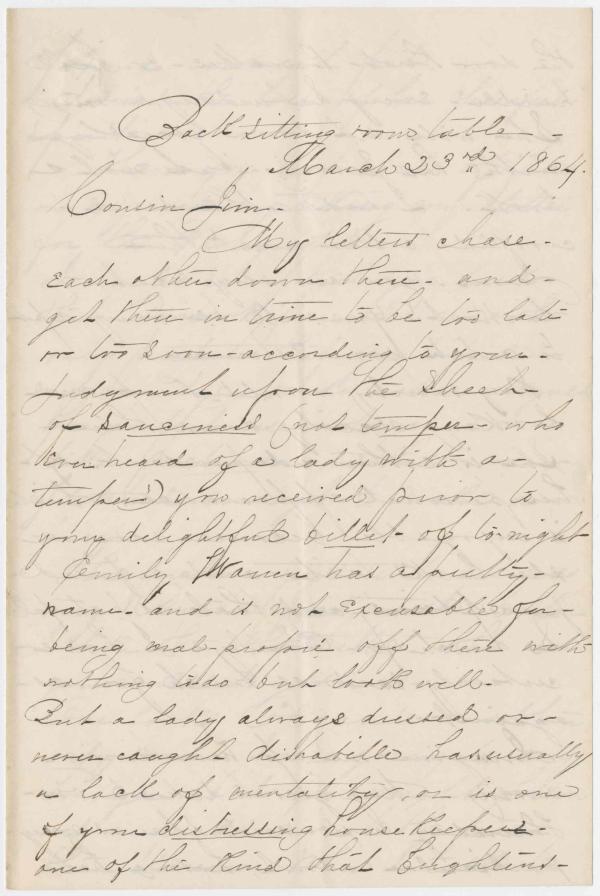 Back sitting room table -
March 23rd 1864.
Cousin Jim -
My letters chase -
each other down there - and -
get there in time to be too late
or too soon - according to your -
judgment upon the sheet -
of sauciness (not temper - who
ever heard of a lady with a -
temper!) you received prior to
your delightful billet of to-night
Emily Warren has a pretty -
name - and is not excusable for -
being mal-propre off there with
nothing to do but look well -
But a lady always dressed or -
never caught dishabille has usually
a lack of mentality, or is one
of your distressing housekeepers -
one of the kind that